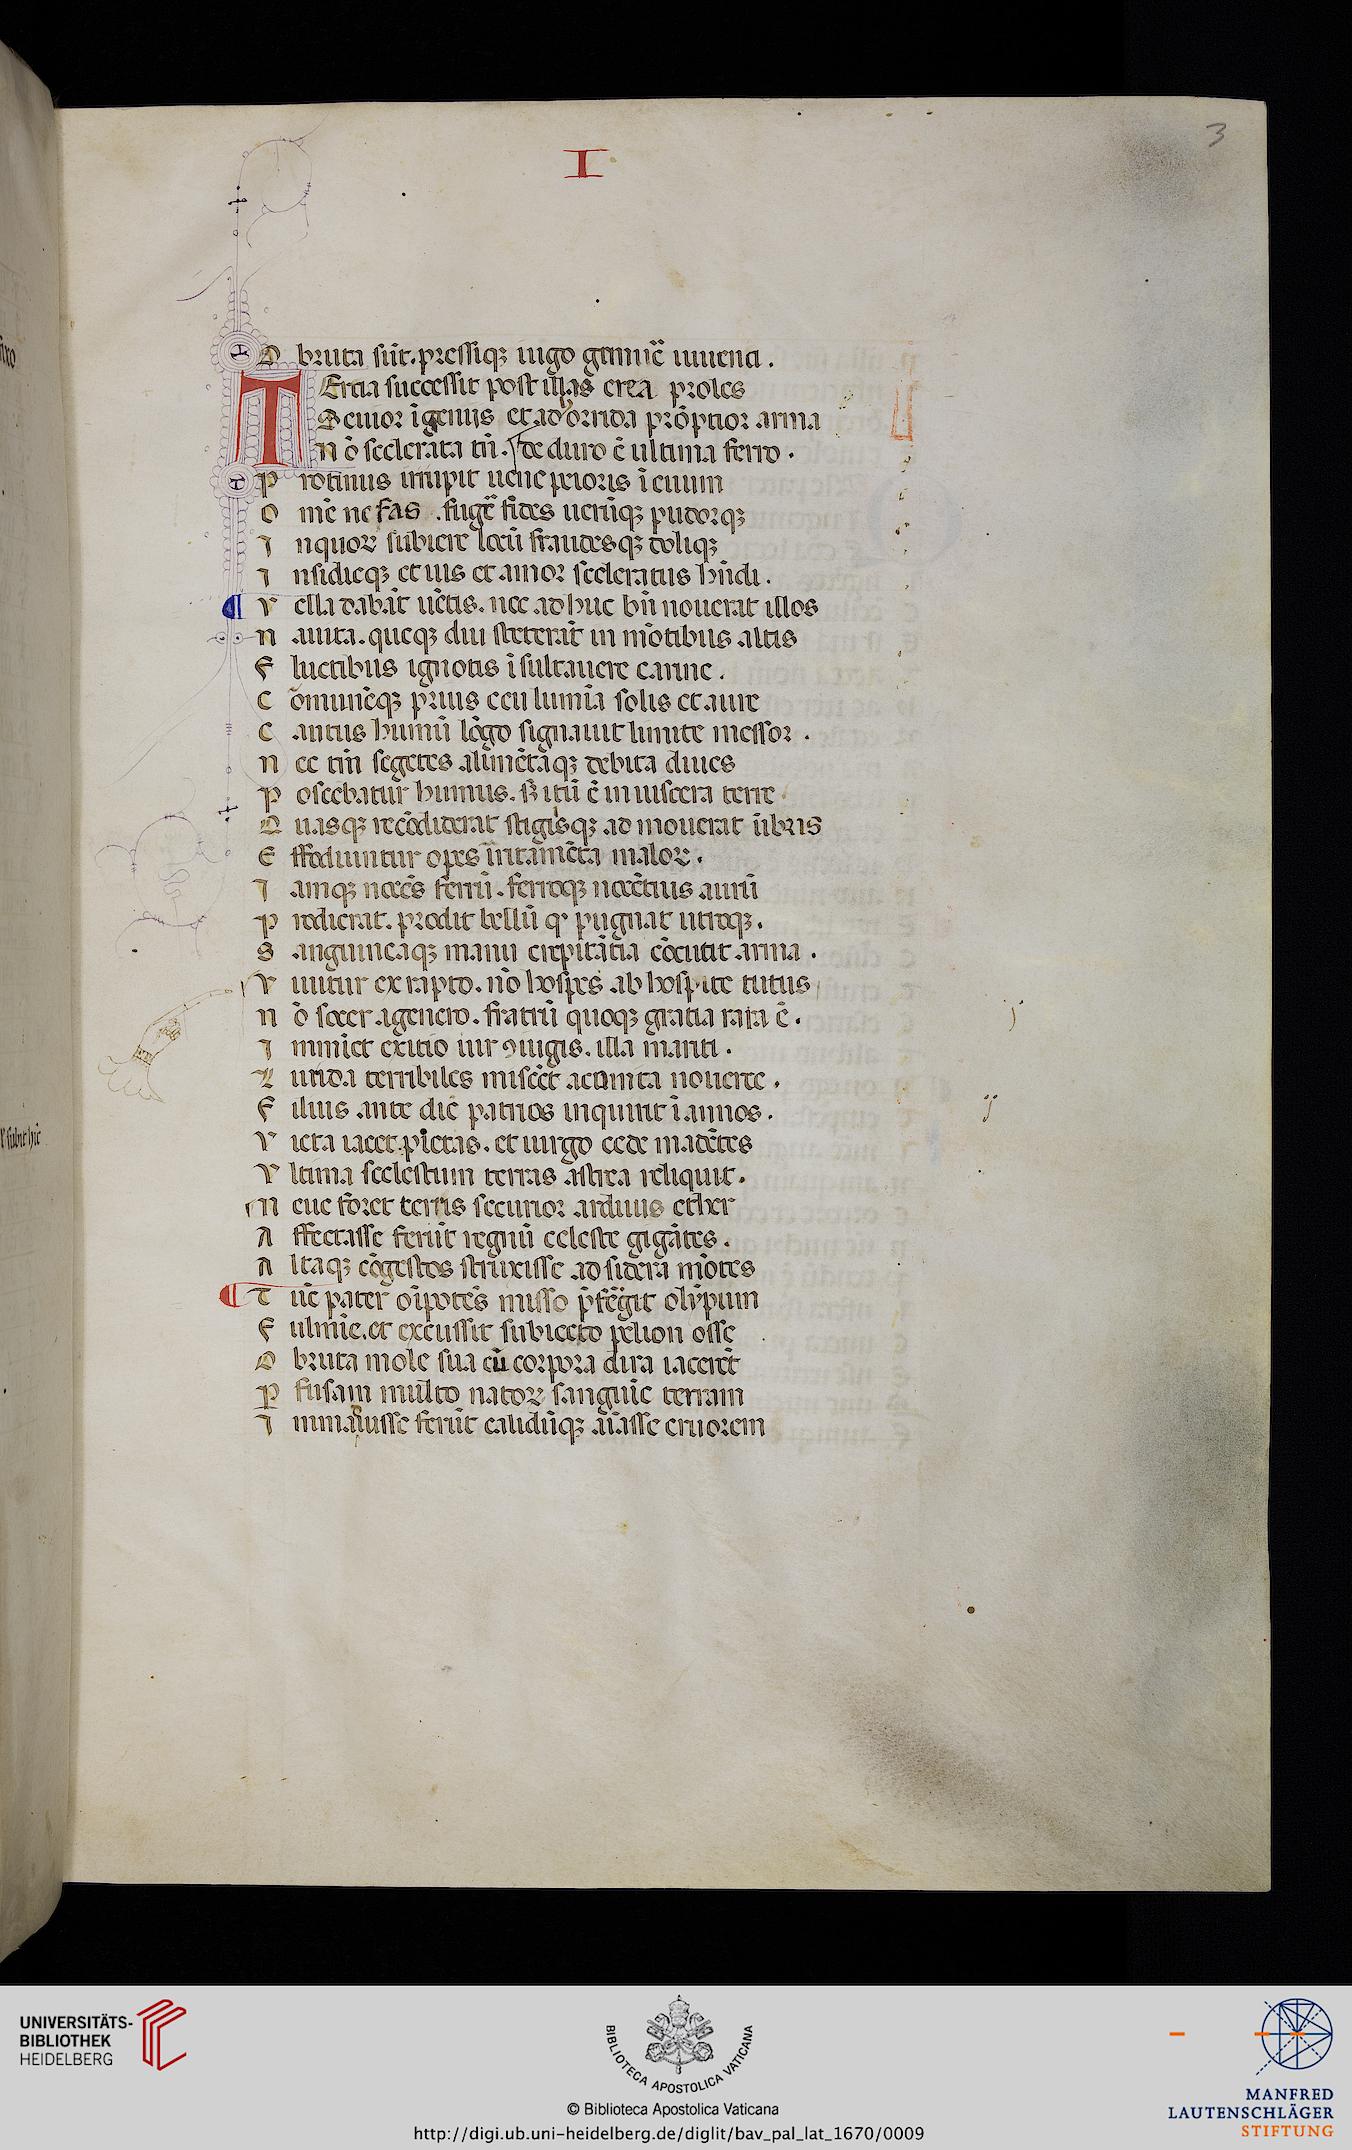 I
3
O bruta sūt. pressiq; iugo gemuē iuuenci.
TErcia successit post illas erea proles
Seuior īgenijs et ad orrida prōptior arma
N ō scelerata tn̄. de duro ē ultima ferro.
P rotinus irrupit uene peioris ī euum
O mē nefas. fugēr fides uerūq; pudorq;
I nquoꝝ subiere locū fraudesq; doliq;
I nsidieq; et uis et amor sceleratus hn̄di.
V ella dabāt uētis. nec adhuc bn̄ nouerat illos
N auita. queq; diu steterāt in mōtibus altis
F luctibus ignotis īsultauere carine.
C omunēq; prius ceu lumīa solis et aure
C autus humū lōgo signauit limite messor.
N ec tm̄ segetes alimētaq; debita diues
P oscebatur humus. s; itū ē in uiscera terre
Q uasq; recōdiderat stigisq; admouerat ūbris
E ffodiuntur opes irritamēta maloꝝ.
I amq; nocēs ferrū. ferroq; nocētius aurū
P rodierat. prodit bellū qͦ pugnat utroq;.
S anguineaq; manu crepitātia cōcutit arma.
V iuitur ex rapto. nō hospes ab hospite tutus
N ō socer a genero. fratrū quoq; gratia rara ē.
I mminet exitio uir ꝯiugis. illa mariti.
L urida terribiles miscēt aconita nouerce.
F ilius ante diē patrios inquirit ī annos.
V icta iacet pietas. et uirgo cede madētes
V ltima celestum terras astrea reliquit.
N eue foret terris securior arduus ether
A ffectasse ferūt regnū celeste gigātes.
A ltaq; cōgestos struxisse ad sidera mōtes
T ūc pater oīpotēs misso pfrēgit olȳpum
F ulmīe. et excussit subiecto pelion osse
O bruta mole sua cū corpora dira iacerēt
P fusam multo natoꝝ sanguīe terram
I mmaduisse ferūt calidūq; aīasse cruorem
UNIVERSITÄTS-
BIBLIOTHEK
HEIDELBERG
BIBLIOTECA APOSTOLICA VATICANA
© Biblioteca Apostolica Vaticana
http://digi.ub.uni-heidelberg.de/diglit/bav_pal_lat_1670/0009
MANFRED
LAUTENSCHLÄGER
STIFTUNG